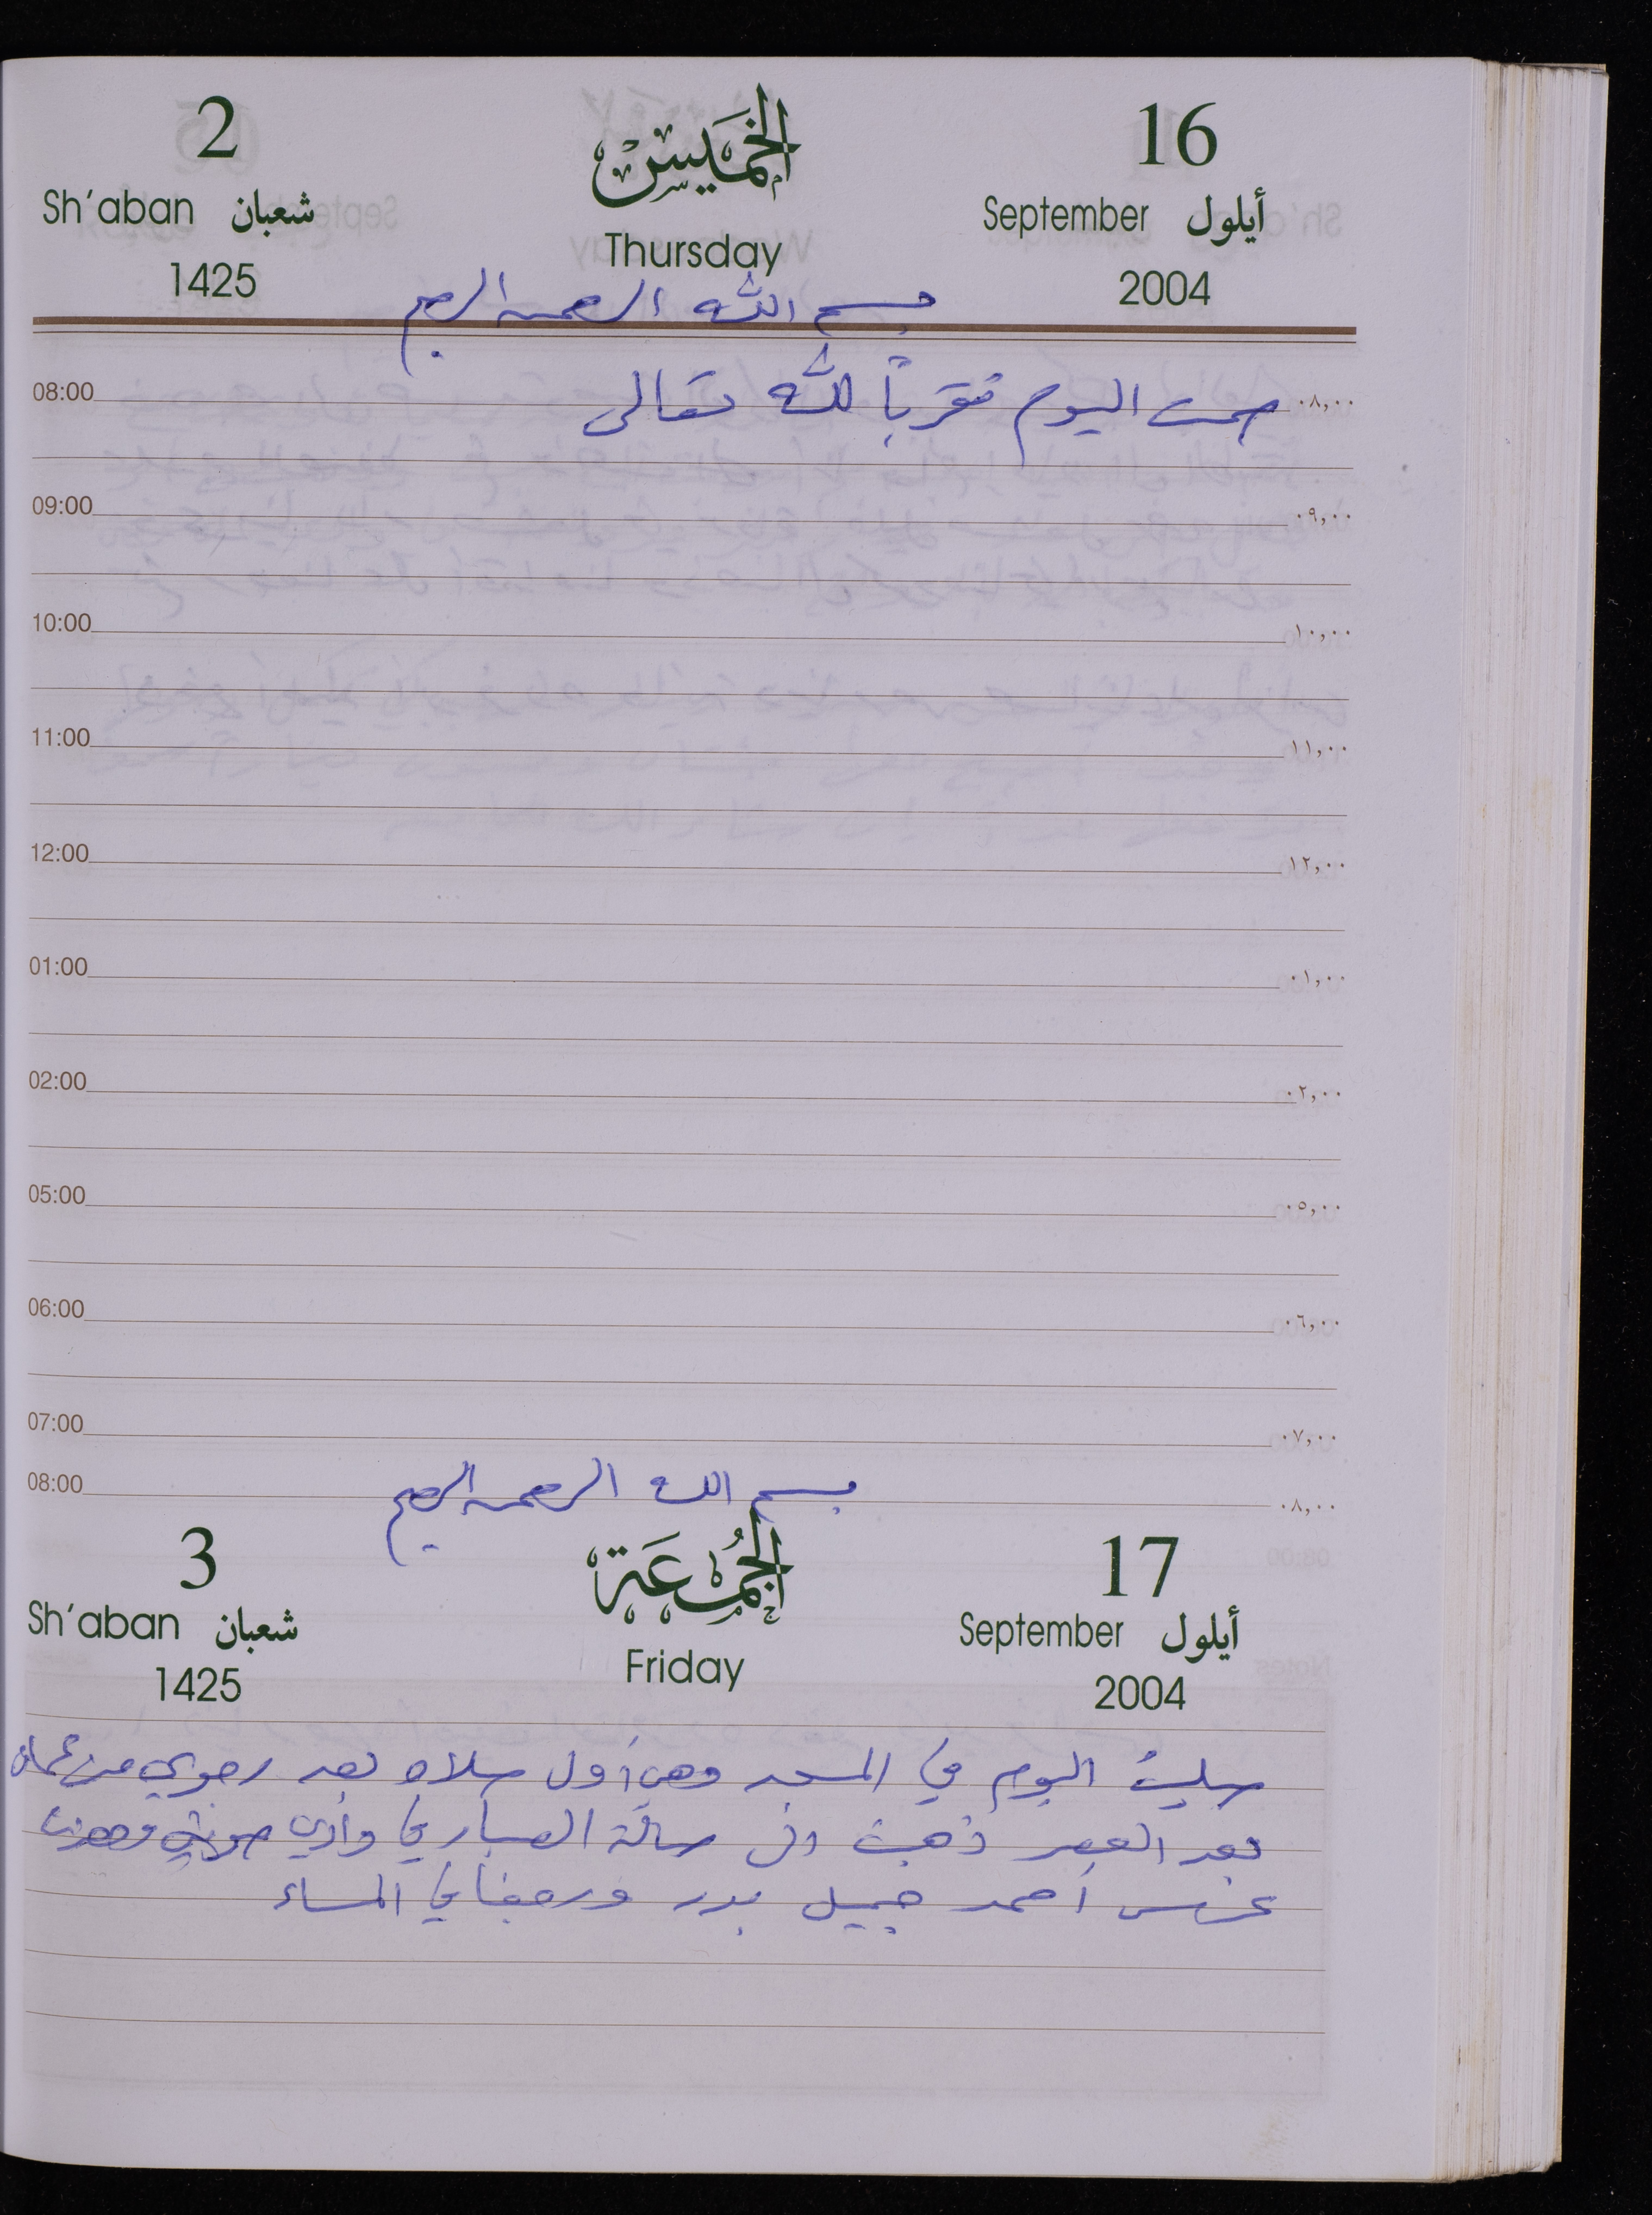 2 الخميس 16
Sh'aban شعبان Thursday September أيلول
1425 2004
بسم الله الرحمن الرحيم
08:00 صمت اليوم تقرباً لله تعالى ٠٨,٠٠
09:00 ٠٩,٠٠
10:00 ١٠,٠٠
11:00 ١١,٠٠
12:00 ١٢,٠٠
01:00 ٠١,٠٠
02:00 ٠٢,٠٠
05:00 ٠٥,٠٠
06:00 ٠٦,٠٠
07:00 ٠٧,٠٠
08:00 بسم الله الرحمن الرحيم ٠٨,٠٠
3 الجمعة 17
Sh'aban شعبان Friday September أيلول
1425 2004
صليت اليوم في المسجد وهي أول صلاة بعد رجوعي من عمان
بعد العصر ذهبت الى صالة
عرس أحمد جميل بدر ورجعنا في المساء